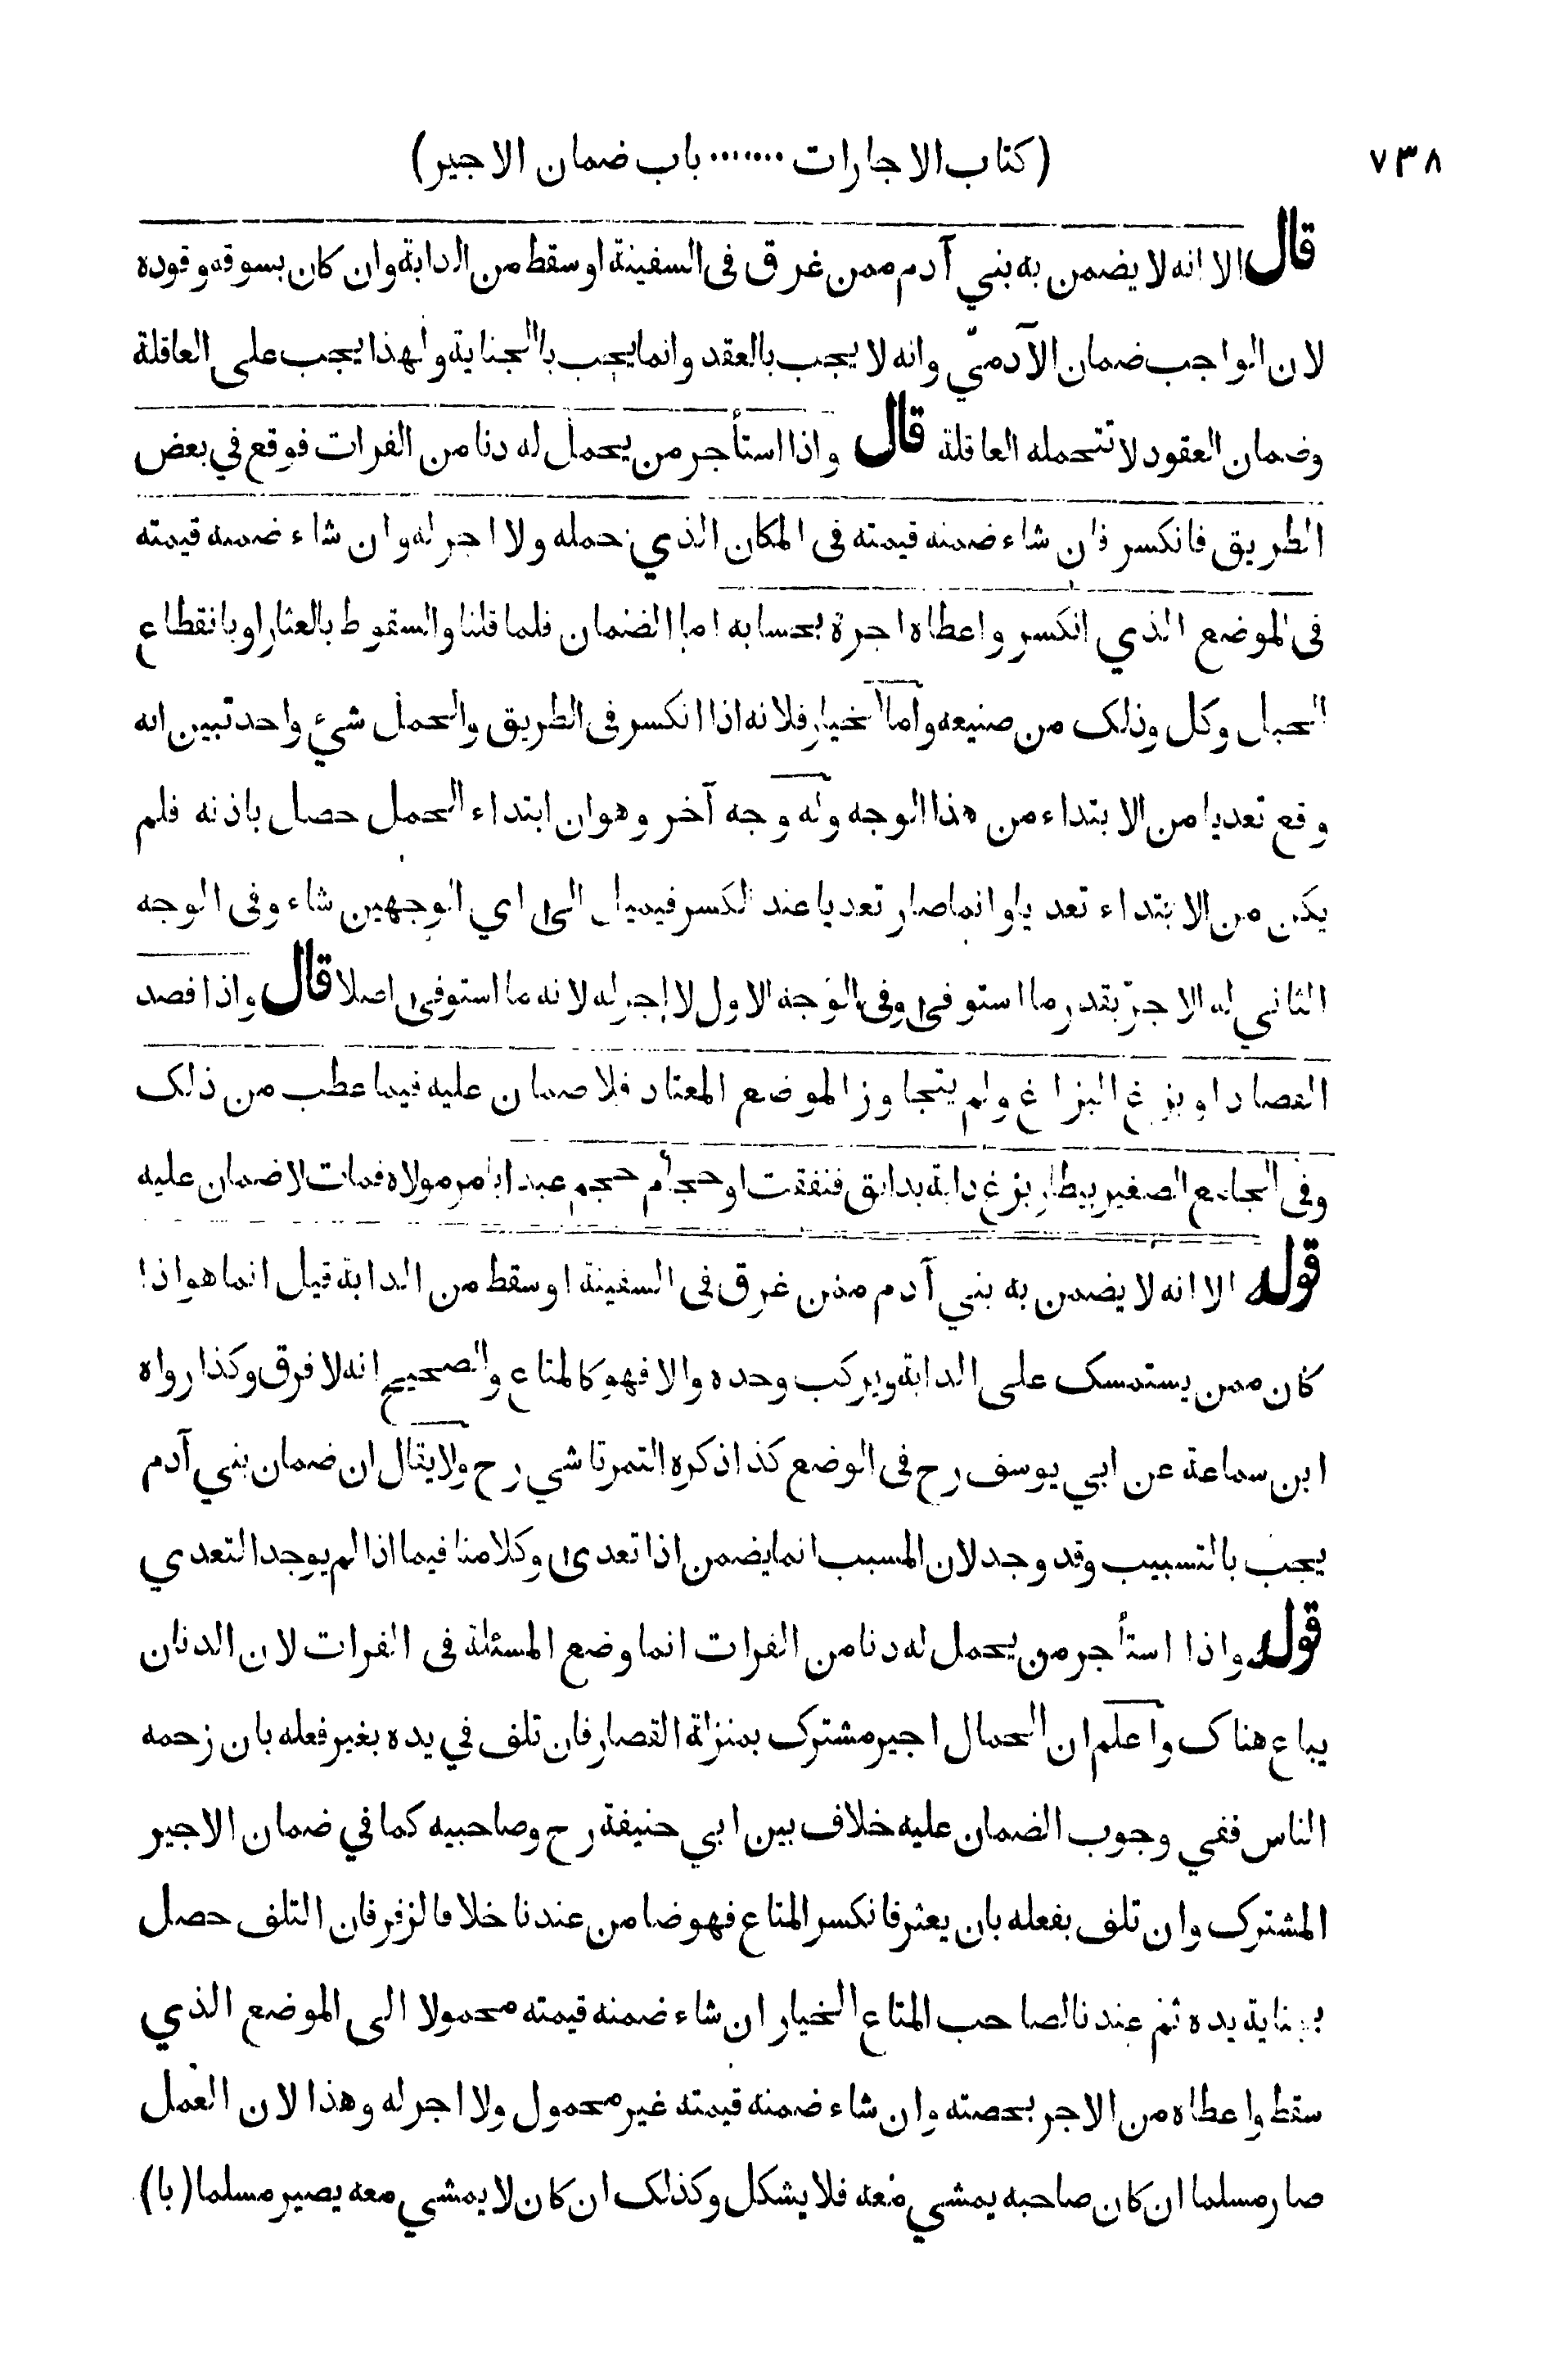 ٧٣٨ (كتاب الاجارات ....... باب ضمان الاجير)
قال الا انه لا يضمن به بني آدم ممن غرق فى السفينة او سقط من الدابة وان كان بسوقه وقوده
لان الواجب ضمان الآدميّ وانه لا يجب بالعقد وانما يجب بالجناية ولهذا يجب على العاقلة
وضمان العقود لا تتحمله العاقلة قال واذا استأجر من يحمل له دنا من الفرات فوقع في بعض
الطريق فانكسر فان شاء ضمنه قيمته فى المكان الذي حمله ولا اجر له وان شاء ضمنه قيمته
فى الموضع الذي انكسر واعطاه اجرة بحسابه اما الضمان فلما قلنا والسقوط بالعثار او بانقطاع
الحبل وكل وذلك من صنيعه واما الخيار فلانه اذا انكسر فى الطريق والحمل شيء واحد تبين انه
وقع تعديا من الابتداء من هذا الوجه وله وجه آخر وهو ان ابتداء الحمل حصل باذنه فلم
يكن من الابتداء تعديا وانما صار تعديا عند الكسر فيميل الى اي الوجهين شاء وفى الوجه
الثاني له الاجر بقدر ما استوفى وفى الوجه الاول لا اجر له لانه ما استوفى اصلا قال واذا فصد
الفصاد او بزغ البزاغ ولم يتجاوز الموضع المعتاد فلا ضمان عليه فيما عطب من ذلك
وفى الجامع الصغير بيطار بزغ دابة بدانق فنفقت او حجام حجم عبدا بامر مولاه فمات لا ضمان عليه
قوله الا انه لا يضمن به بني آدم ممن غرق فى السفينة او سقط من الدابة قيل انما هو اذا
كان ممن يستمسك على الدابة ويركب وحده والا فهو كالمتاع والصحيح انه لا فرق وكذا رواه
ابن سماعة عن ابي يوسف رح فى الوضع كذا ذكره التمرتاشي رح ولا يقال ان ضمان بني آدم
يجب بالتسبيب وقد وجد لان المسبب انما يضمن اذا تعدى وكلامنا فيما اذا لم يوجد التعدي
قوله واذا استأجر من يحمل له دنا من الفرات انما وضع المسئلة فى الفرات لان الدنان
يباع هناك واعلم ان الحمال اجير مشترك بمنزلة القصار فان تلف في يده بغير فعله بان زحمه
الناس ففي وجوب الضمان عليه خلاف بين ابي حنيفة رح وصاحبيه كما في ضمان الاجير
المشترك وان تلف بفعله بان يعثر فانكسر المتاع فهو ضامن عندنا خلافا لزفر فان التلف حصل
بجناية يده ثم عندنا لصاحب المتاع الخيار ان شاء ضمنه قيمته محمولا الى الموضع الذي
سقط واعطاه من الاجر بحصته وان شاء ضمنه قيمته غير محمول ولا اجر له وهذا لان العمل
صار مسلما ان كان صاحبه يمشي معه فلا يشكل وكذلك ان كان لا يمشي معه يصير مسلما (با)